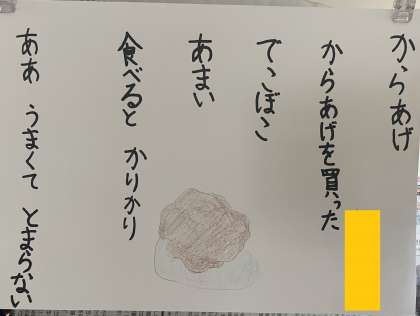 からあげ
からあげを買った
でこぼこ
あまい
食べると かりかり
ああ うまくて とまらない